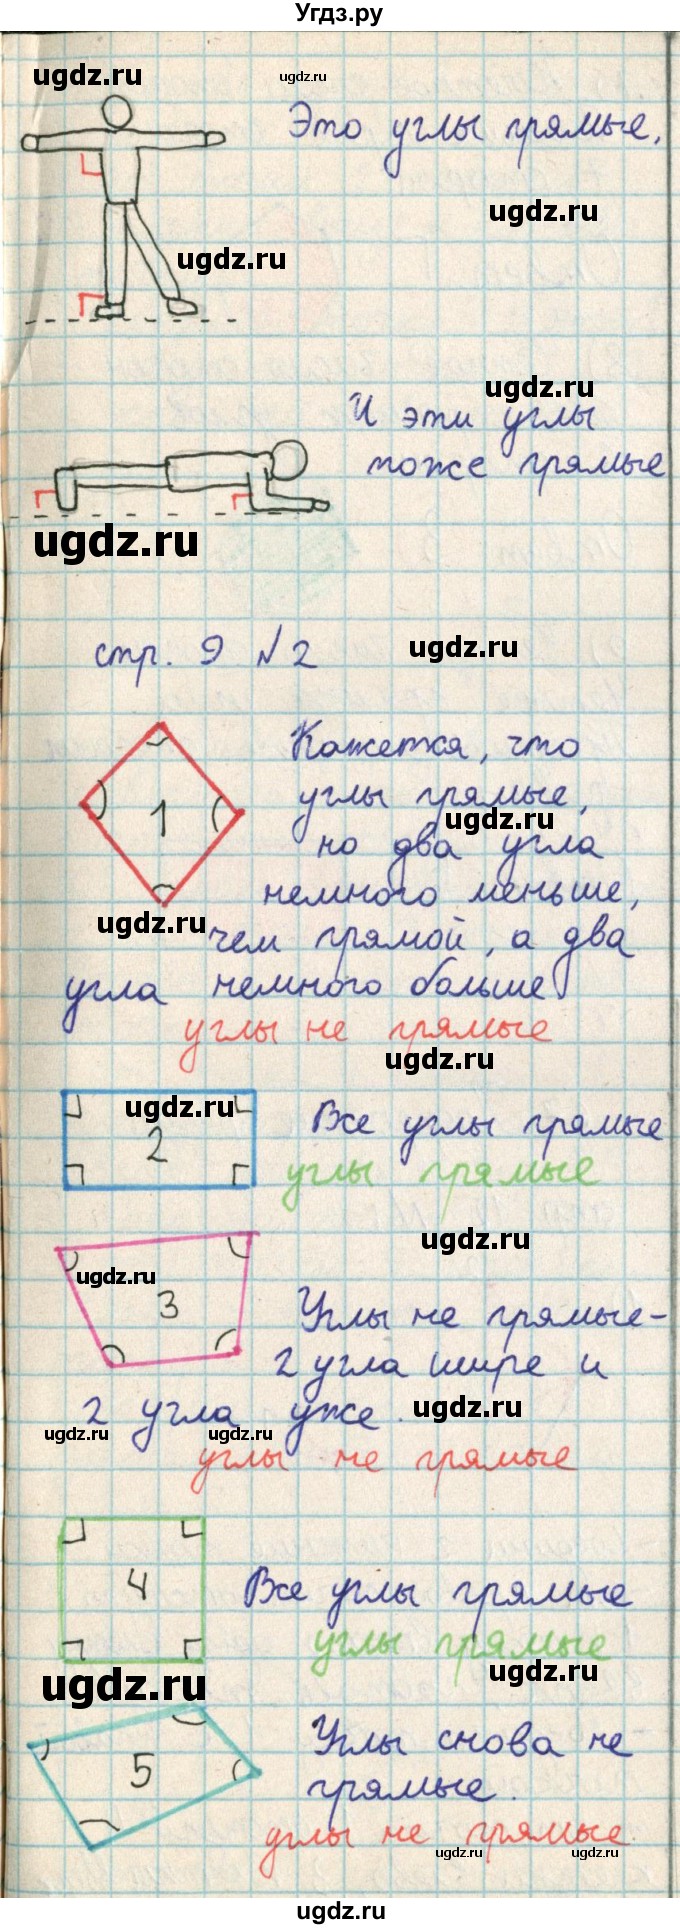 Угдз.ру
ugdz.ru ugdz.ru
Это углы прямые.
ugdz.ru
ugdz.ru
ugdz.ru
И эти углы
тоже прямые
ugdz.ru
стр. 9 №2
ugdz.ru
Кажется, что
углы прямые,
ugdz.ru
1
но два угла
немного меньше,
ugdz.ru
чем прямой, а два
угла немного больше
углы не прямые
ugdz.ru
ugdz.ru
Все углы прямые
2
углы прямые
ugdz.ru
ugdz.ru
3
Углы не прямые-
2 угла шире и
2 угла уже.
ugdz.ru
ugdz.ru ugdz.ru
углы не прямые
4
Все углы прямые
углы прямые
ugdz.ru
ugdz.ru
Углы снова не
5
прямые.
углы не прямые.
ugdz.ru ugdz.ru
ugdz.ru